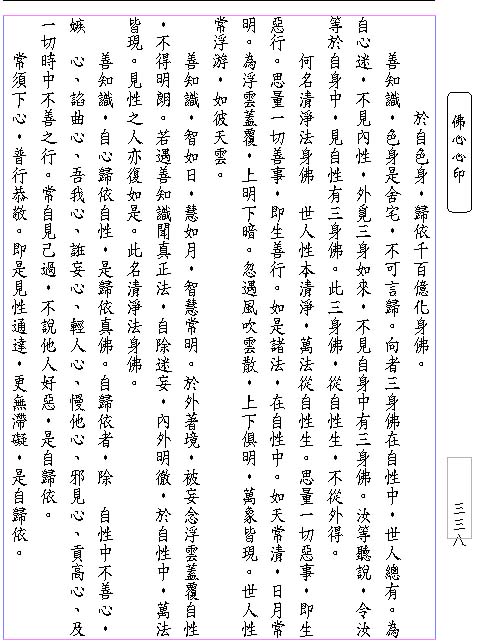 佛心心印
三三八
於自色身，歸依千百億化身佛。
善知識，色身是舍宅，不可言歸。向者三身佛在自性中，世人總有。為
自心迷，不見內性，外覓三身如來，不見自身中有三身佛。汝等聽說，令汝
等於自身中，見自性有三身佛。此三身佛，從自性生，不從外得。
何名清淨法身佛　世人性本清淨，萬法從自性生。思量一切惡事，即生
惡行。思量一切善事，即生善行。如是諸法，在自性中。如天常清，日月常
明。為浮雲蓋覆，上明下暗。忽遇風吹雲散，上下俱明，萬象皆現。世人性
常浮游，如彼天雲。
善知識，智如日，慧如月，智慧常明。於外著境，被妄念浮雲蓋覆自性
，不得明朗。若遇善知識聞真正法，自除迷妄，內外明徹，於自性中，萬法
皆現。見性之人亦復如是。此名清淨法身佛。
善知識，自心歸依自性，是歸依真佛。自歸依者，除　自性中不善心、
嫉　心、諂曲心、吾我心、誑妄心、輕人心、慢他心、邪見心、貢高心、及
一切時中不善之行。常自見己過，不說他人好惡，是自歸依。
常須下心，普行恭敬。即是見性通達，更無滯礙，是自歸依。